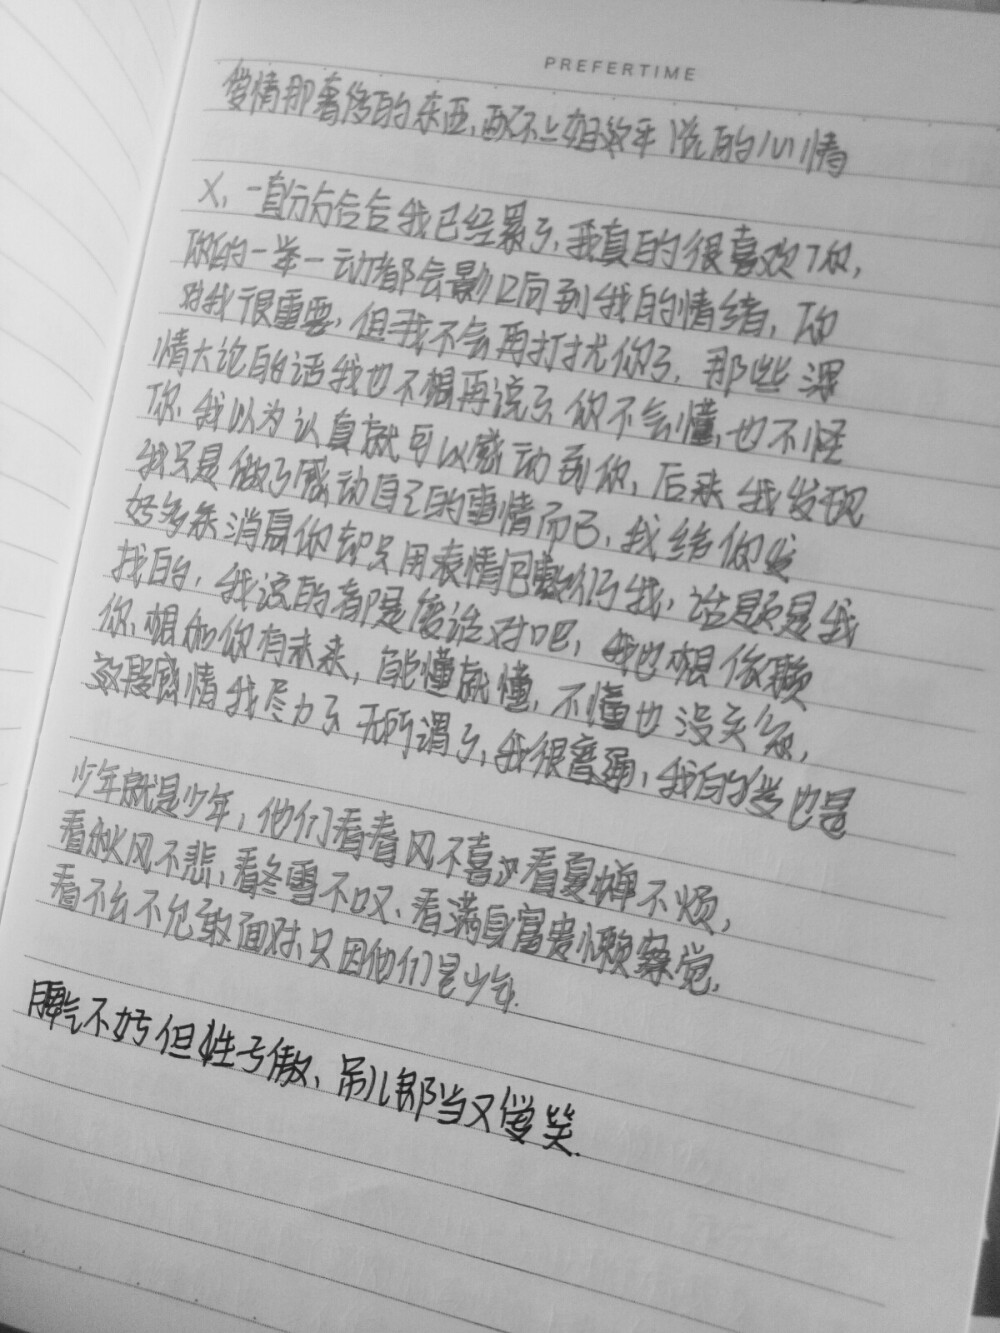 PREFERTIME
爱情那奢侈的东西,配不上姐放平 的心情
X,一直分分合合我已经累了,我真的很喜欢了你,
你的一举一动都会影响到我的情绪,你
对我很重要,但我不会再打扰你了,那些深
情大论的话我也不想再说了你不会懂,也不怪
你,我以为认真就可以感动到你,后来我发现
我只是做了感动自己的事情而已,我给你发
好多条消息你却只用表情包敷衍我,话题是我
找的,我说的都是废话对吧,我也想依赖
你,想和你有未来,能懂就懂,不懂也没关系,
这段感情我尽力了无所谓了,我很普通,我的爱也是
少年就是少年,他们看春风不喜,看夏蝉不烦,
看秋风不悲,看冬雪不叹、看满身富贵懒察觉,
看不公不允敢面对,只因他们是少年.
脾气不好但性子傲、吊儿郎当又爱笑.